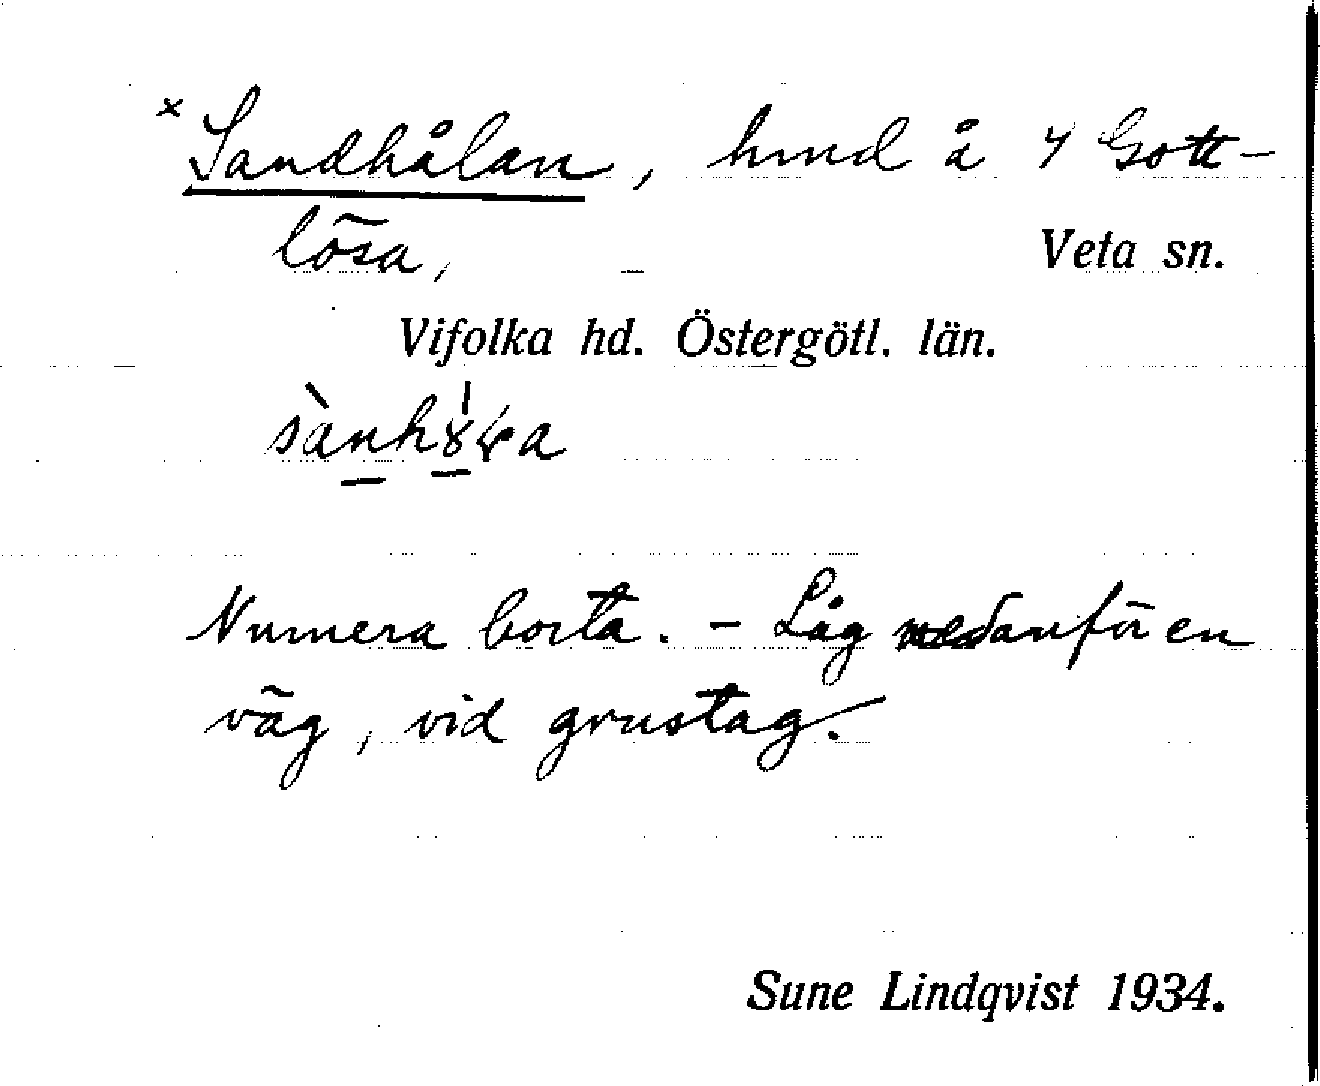 × Sandhålan, hmd å 4 Gott-
lösa,
Veta sn.
Vifolka hd. Östergötl. län.
Numera borta. – Låg nedanför en
väg, vid grustag.
Sune Lindqvist 1934.